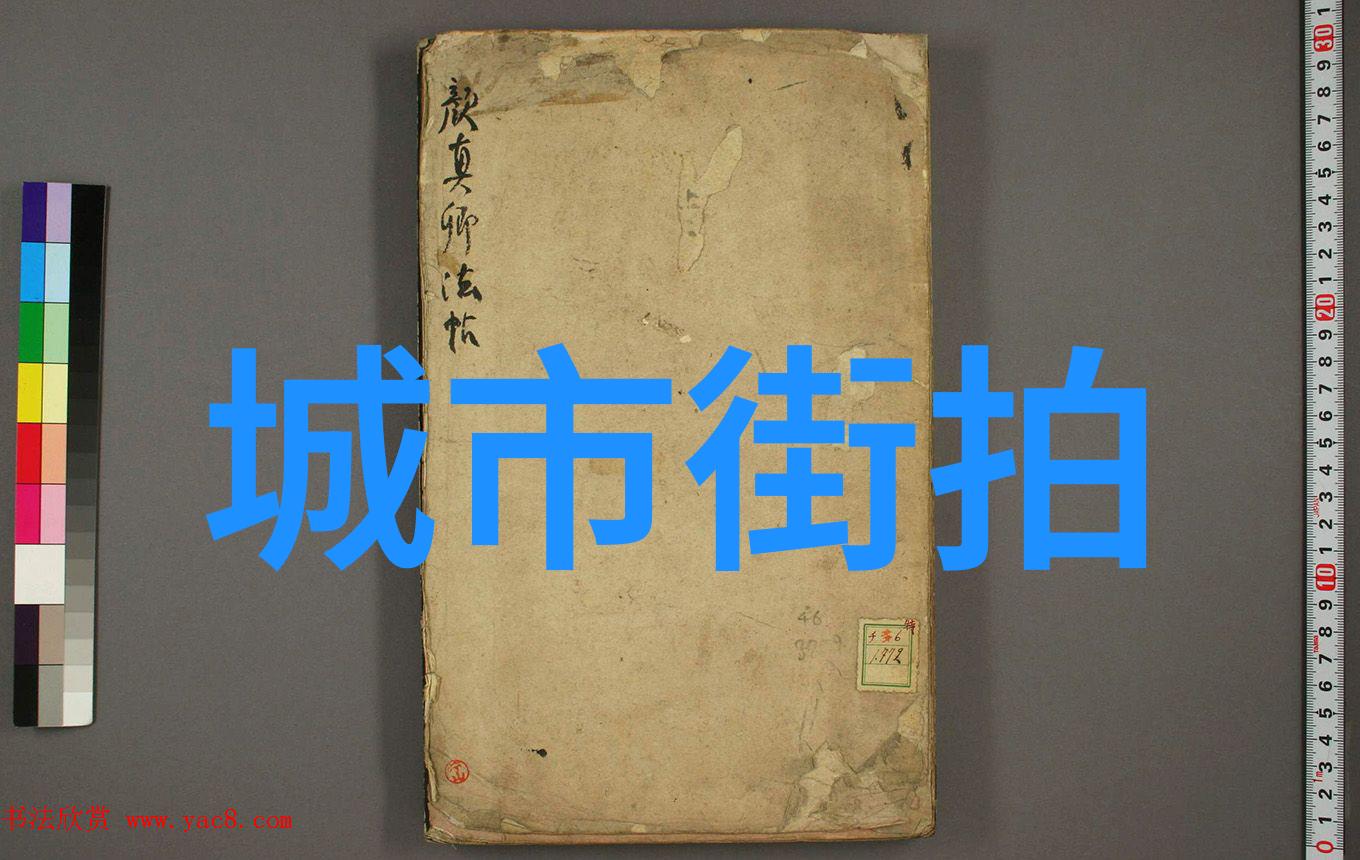 顔真卿法帖
城市街拍
46
特
チ 6
1772
书法欣赏 www.yac8.com
1
30
9
8
7
6
5
4
3
2
1
20
9
8
7
6
5
4
3
2
1
10
9
8
7
6
5
4
3
2
1
0